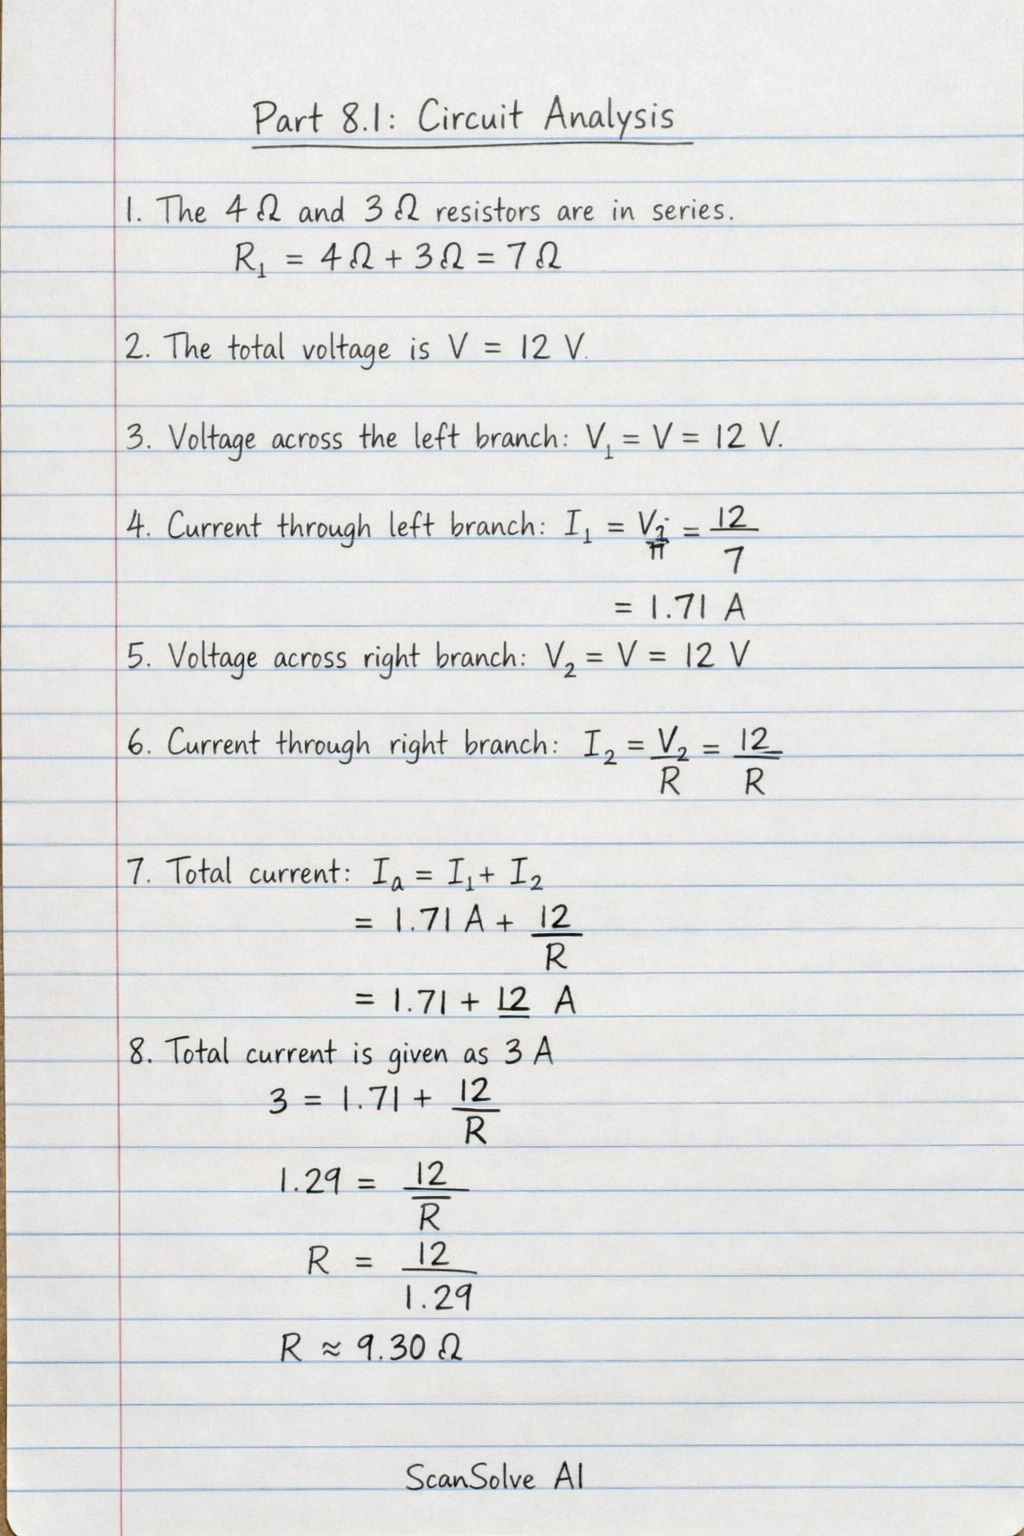 Part 8.1: Circuit Analysis
1. The 4 Ω and 3 Ω resistors are in series.
R₁ = 4 Ω + 3 Ω = 7 Ω
2. The total voltage is V = 12 V.
3. Voltage across the left branch: V₁ = V = 12 V.
4. Current through left branch: I₁ = V = 12/7
= 1.71 A
5. Voltage across right branch: V₂ = V = 12 V
6. Current through right branch: I₂ = V₂/R = 12/R
7. Total current: Iₐ = I₁ + I₂
= 1.71 A + 12/R
= 1.71 + 12 A
8. Total current is given as 3 A
3 = 1.71 + 12/R
1.29 = 12/R
R = 12/1.29
R ≈ 9.30 Ω
ScanSolve AI